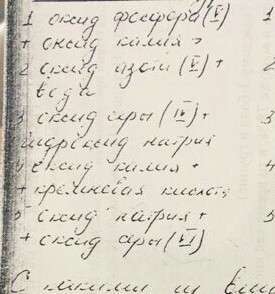 1 оксид фосфора (V)
+ оксид калия =
2 оксид азота (V) +
вода
3 оксид серы (IV) +
гидроксид натрия
4 оксид калия +
+ кремниевая кислота
5 оксид натрия +
+ оксид серы (VI)
С какими из
1
2
3
4
5